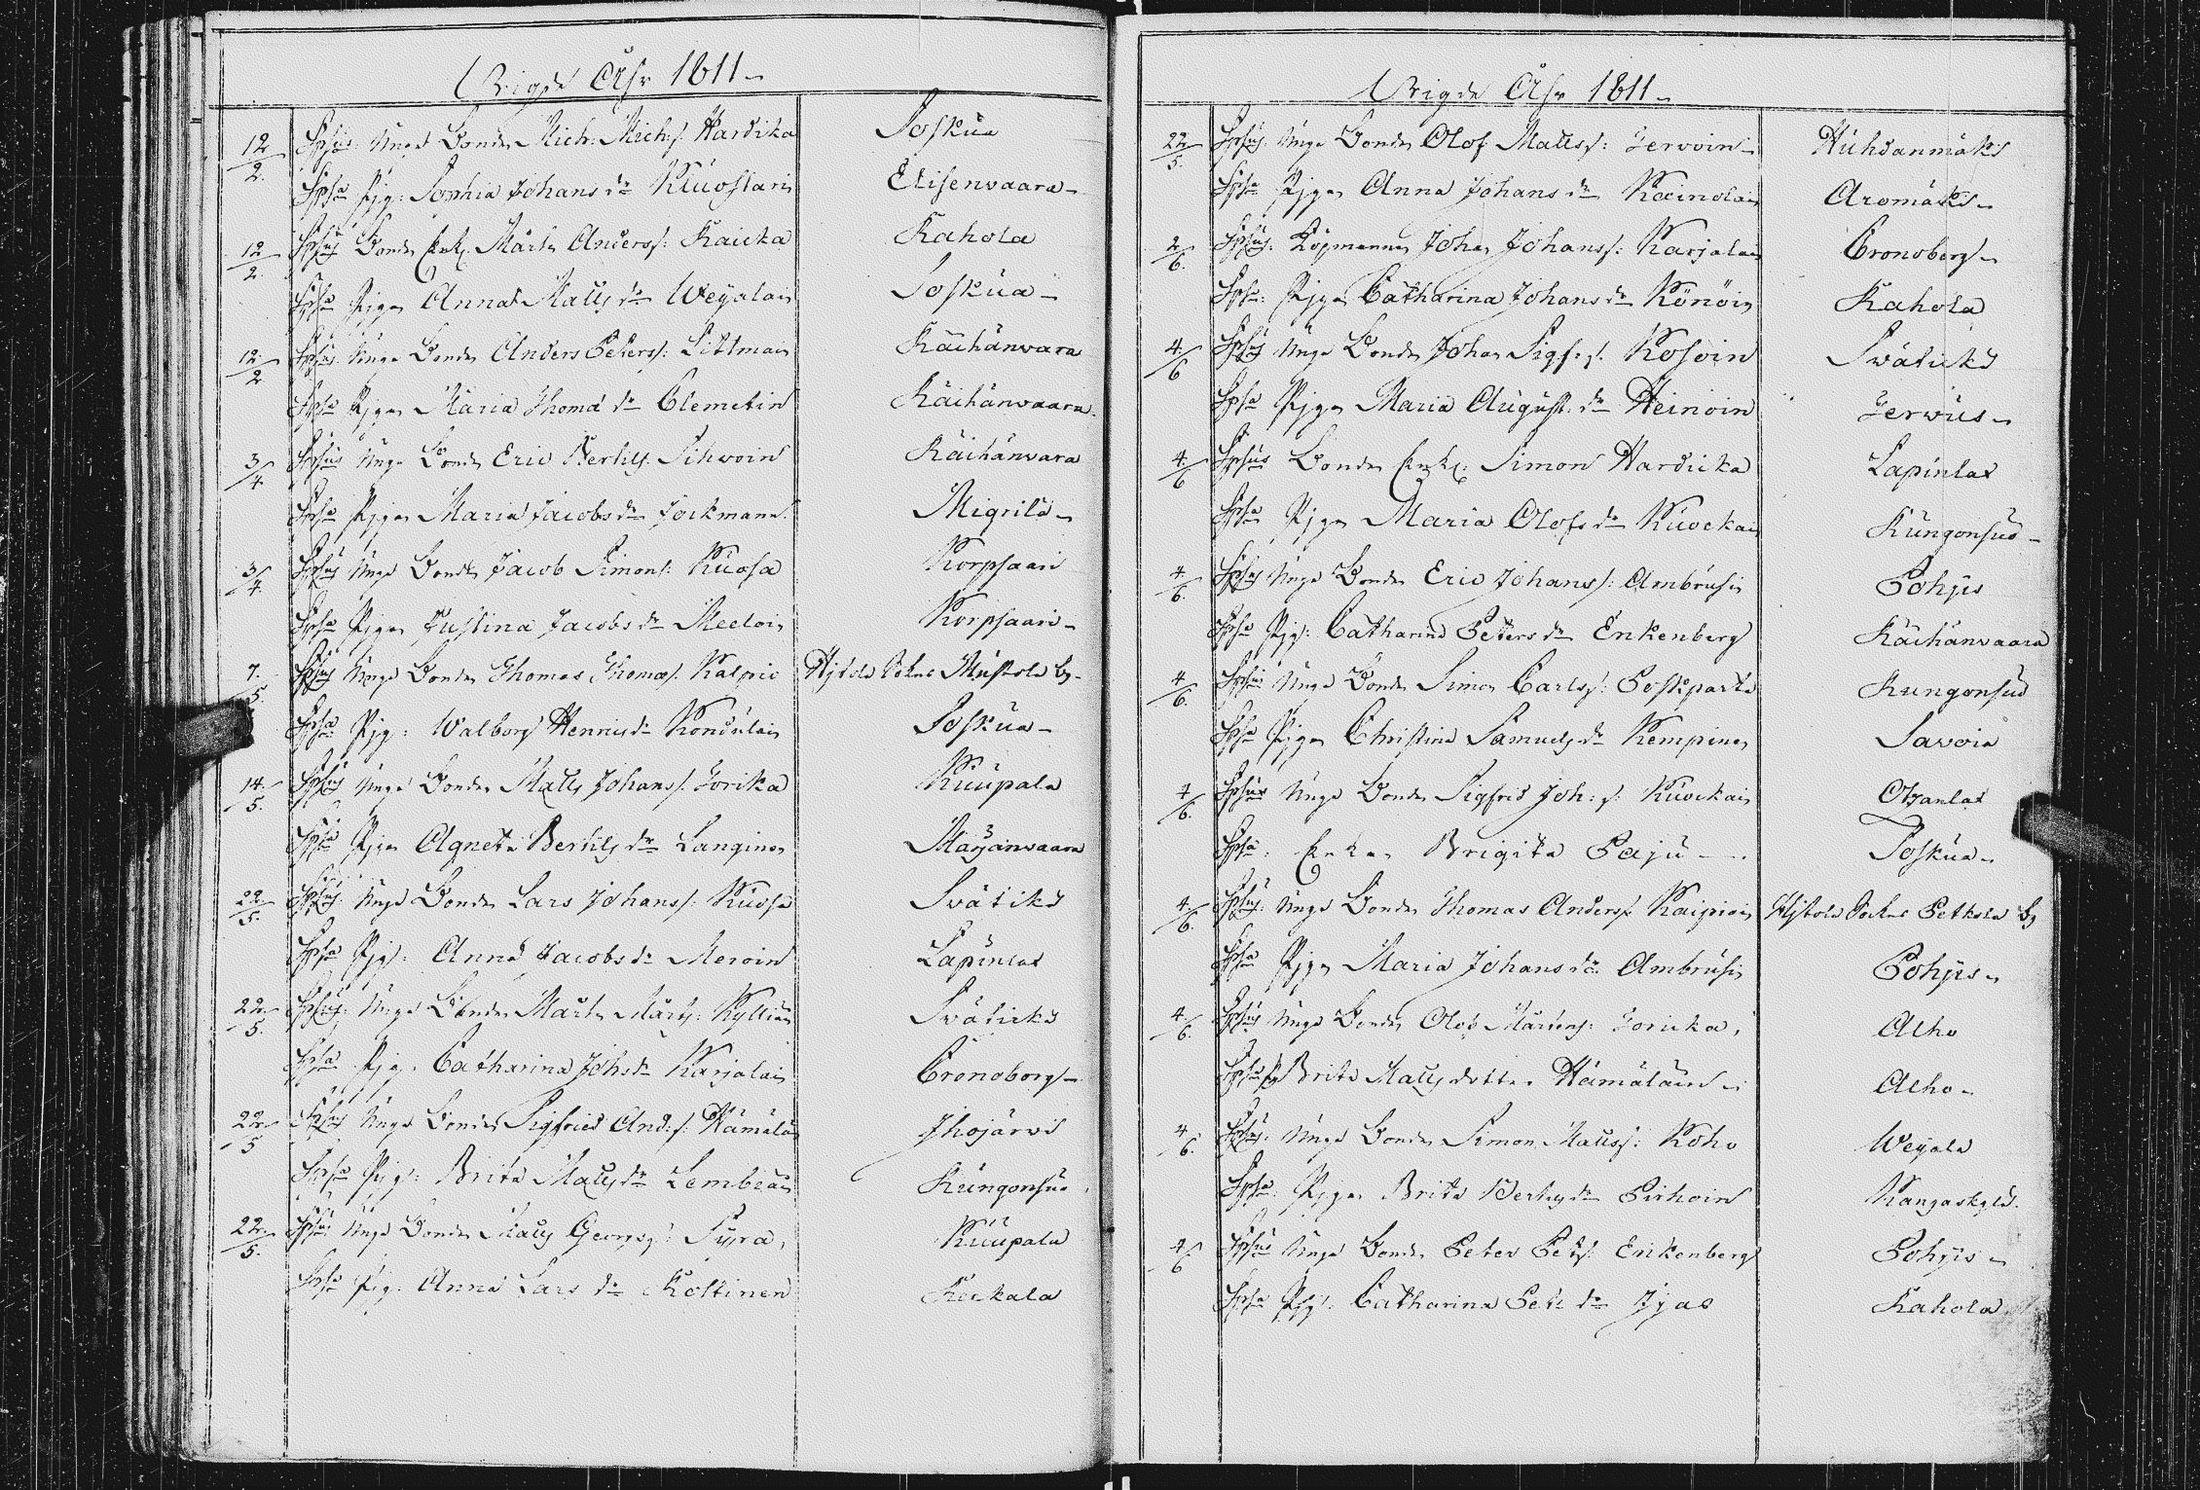 Wigde Åhr 1811
12/2. Spsus: Unge Bonden Mich: Michs: Hardika Soskua
Spsa Pig: Sophia Johans dr Kluostari Elisenvaara
12/2. Spsus Bonde Enk: Mårt: Anderss: Kaicka Kahola
Spsa Pigan Anna Matts dr Weyalain Soskua
12/2 Spsus: Unge Bonden Anders Peterss: Littman Räihänvara
Spsa Pigan Maria Thomæ dr Clemetin Räihänvaara
3/4 Spsus Unge Bonden Eric Bertils: Sihvoin Räihänvara
Spsa Pigan Maria Jacobs dr Jockmann Migrilä
3/4. Spsus Unge Bonden Jacob Simons: Kuosa Korpsaari
Spsa Pigan Justina Jacobs dr Meeloin Korpsaari
7./5. Spsus Unge Bonden Thomas Thomæs: Kalpio Hjtola Sokne Mustola by
Spsa Pig: Walborg Hennis dr Kondulain Soskua
14./5. Spsus Unge Bonden Matts Johans: Jorika Kuupala
Spsa Pigan Agneta Bertils dr Langinen Marjanvaara
22/5. Spsus: Unge Bonden Lars Johanss: Kuosa Svätiks
Spsa Pig: Anna Jacobs dr Meroin Lapinlax
22./5. Spsus: Unge Bonden Mårt: Mårts: Kylliäin Svätickä
Spsa Pig: Catharina Johs dr Karjalain Cronoborg
22./5 Spsus Unge Bonden Sigfried And: s: Hämäläin Ihojärvi
Spsa Pig: Brita Matts dr Lembiäin Kungonsuo
22./5. Spsus Unge Bonden Matts Georgs: Syra Kuupala
Spsa Pig: Anna Lars dr Moltinen Kockala
Wigde Åhr 1811
22/5. Spsus. Unge Bonden Olof Mattss: Jervoin Huhdanmäki
Spsa Pigan Anna Johans dr Kainolain Aromäki
2/6. Spsus: Köpmannen Johan Johanss: Karjalain Cronoborg
Spsa: Pigan Catharina Johans dr Könöin Kahola
4/6 Spsus Unge Bonden Johan Sigfr: s: Kosoin Svätickä
Spsa Pigan Maria August: dr Heinoin Jervus
4/6 Spsus Bonden Enkl: Simon Hardicka Lapinlax
Spsa Pigan Maria Olofs dr Kuockain Kungonsuo
4/6. Spsus Unge Bonden Eric Johanss: Ambrusin Pohjis
Spsa Pig: Catharina Peters dr Enkenberg Räihänvaara
4/6. Spsus Unge Bonden Simon Carlss: Poskiparta Kungonsuo
Spsa Pigan Christina Samuels dr Kempinen Savoia
4/6. Spsus Unge Bonden Sigfrid Joh: s: Kuockain Otzanlax
Spsa: Enkan Brigita Paju Soskua
4/6. Spsus: Unge Bonden Thomas Anders: Kaipiain Hjtola Sockne Petkola by
Spsa Pigan Maria Johans dr Ambrusin Pohjis
4/6. Spsus Unge Bonden Olof Mårtens: Joricka Alho
Spsa Brita Matts dotter Hämäläin Alho
4/6. Spsus: Unge Bonden Simon Mattss: Koho Weyala
Spsa: Pigan Brita Bertils dr Pirhoin Kangaskylä.
4/6 Spsus Unge Bonden Peter Pets: Enkenberg Pohjis
Spsa Pig: Catharina Pet: dr Iyas Kahola